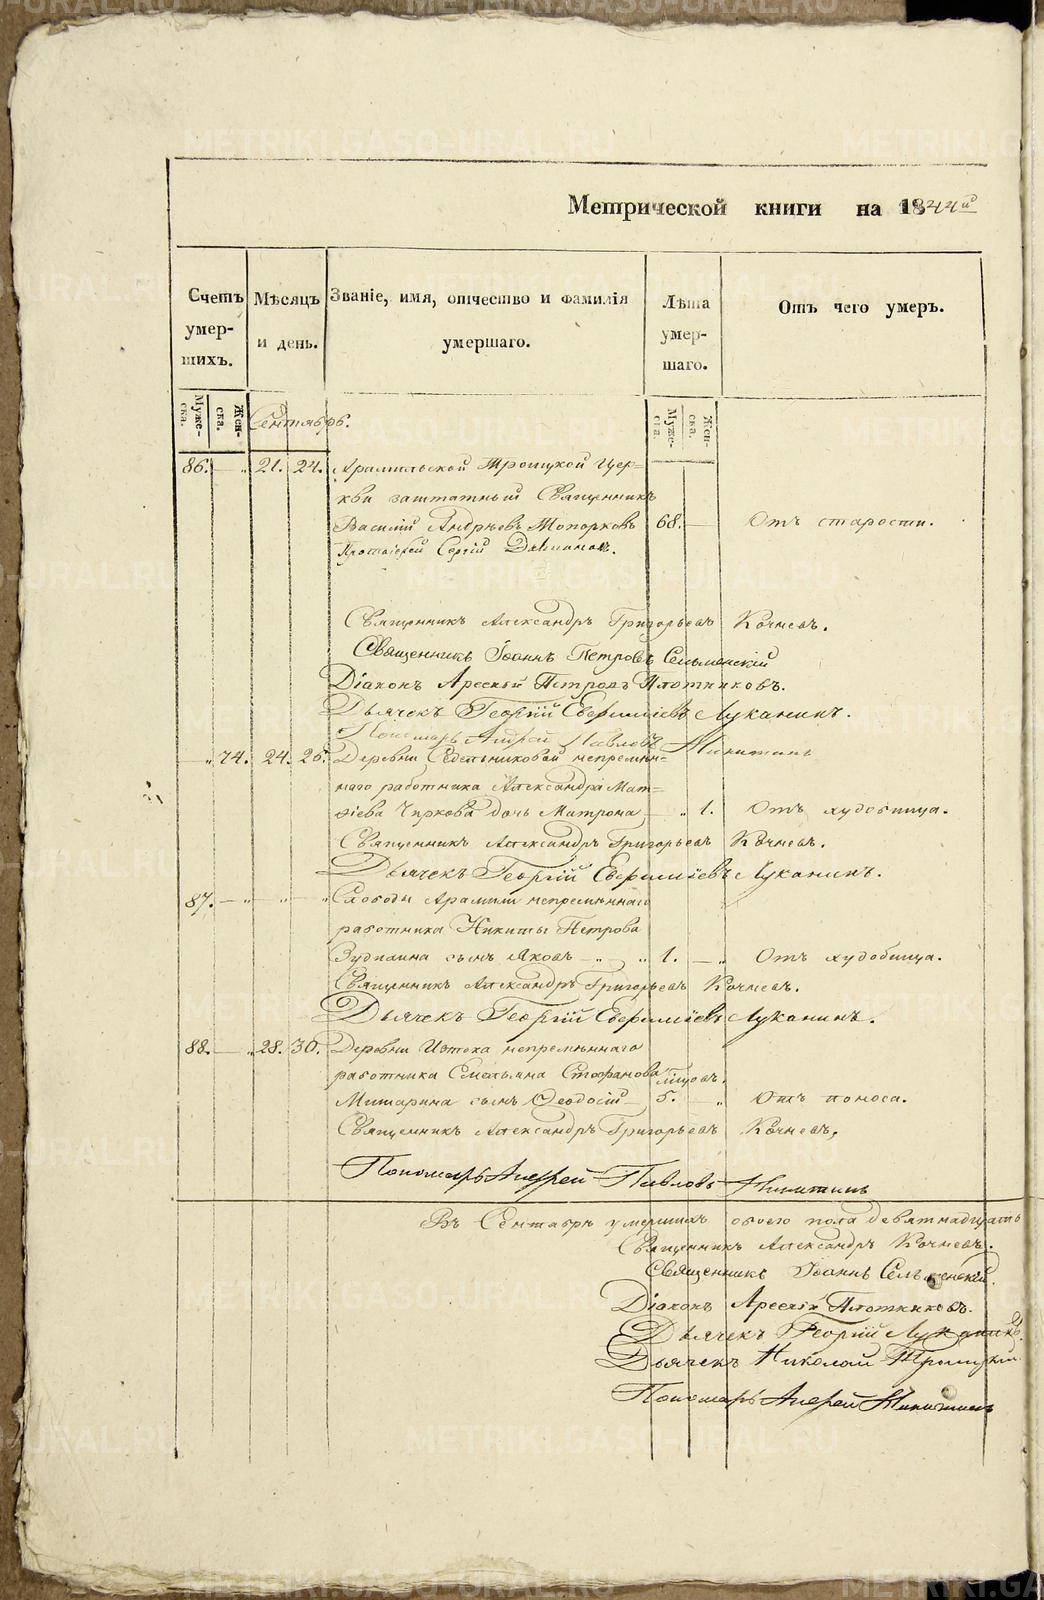 Метрической книги на 1844й
Счетъ умер-шихъ.
Мѣсяцъ и день.
Званіе, имя, отчество и фамилія умершаго.
Лѣта умер-шаго.
Отъ чего умеръ.
Муже-ска. Жен-ска.
Муже-ска. Жен-ска.
Сентябрь.
86. — „ 21. 24. Арамильской Троицкой Цер=
кви заштатный Священникъ
Василій Андрѣевъ Топорковъ 68. — Отъ старости.
Протоіерей Сергій
Священникъ Александръ Григорьевъ Кочневъ.
Священникъ Іоаннъ Петровъ Сельменскій
Діаконъ Арсеній Петровъ Плотниковъ.
Дьячекъ Георгій Евфиміевъ Луканинъ.
Пономарь Андрей Павловъ Никитинъ
— „ 74. 24. 25. Деревни Седельниковой непремѣн=
наго работника Александра Мат=
ѳіева Чиркова дочь Матрона — „ 1. Отъ худобища.
Священникъ Александръ Григорьевъ Кочневъ.
Дьячекъ Георгій Евфиміевъ Луканинъ.
87. — „ — „ — „ Слободы Арамили непремѣннаго
работника Никиты Петрова
сынъ Яковъ — „ „ 1. — „ Отъ худобища.
Священникъ Александръ Григорьевъ Кочневъ.
Дьячекъ Георгій Евфиміевъ Луканинъ.
88. — „ 28. 30. Деревни Истока непремѣннаго
работника Емельяна Стефанова
Митарина сынъ Ѳеодосій — 5. — „ Отъ поноса.
Священникъ Александръ Григорьевъ Кочневъ.
Пономарь Андрей Павловъ Никитинъ
Въ Сентябрѣ умершихъ обоего пола девятнадцать
Священникъ Александръ Кочневъ.
Священникъ Іоаннъ Сельменскій.
Діаконъ Арсеній Плотниковъ.
Дьячекъ Георгій Луканинъ.
Дьячекъ Николай Троицкій.
Пономарь Андрей Никитинъ
METRIKI.GASO-URAL.RU